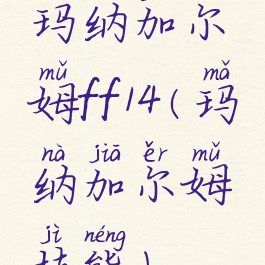 玛纳加尔
mǔ mǎ
姆ff14(玛
nà jiā ěr mǔ
纳加尔姆
jì néng
技能)